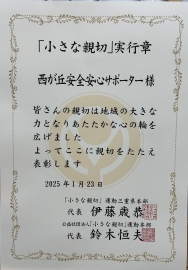 「小さな親切」実行章
西が丘安全安心サポーター 様
皆さんの親切は地域の大きな
力となりあたたかな心の輪を
広げました
よってここに親切をたたえ
表彰します
2025年1月23日
「小さな親切」運動三重県本部
代表 伊藤歳恭
公益社団法人「小さな親切」運動本部
代表 鈴木恒夫